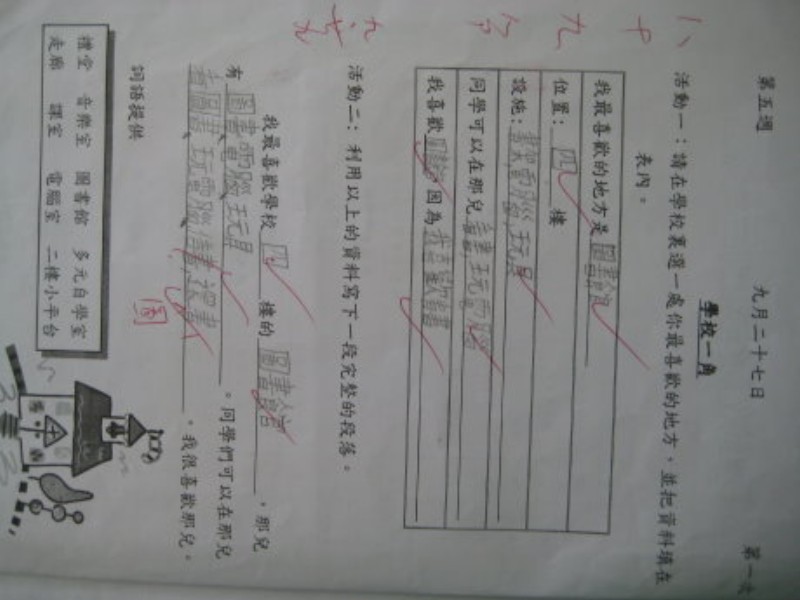 第五週 九月二十七日 第一次
學校一角
活動一：請在學校裏選一處你最喜歡的地方，並把資料填在
表內。
我最喜歡的地方是圖書館
位置：四樓
設施：電腦玩具
同學可以在那兒 玩電腦
我喜歡圖書館因為我喜歡看書
活動二：利用以上的資料寫下一段完整的段落。
我最喜歡學校四樓的圖書館。那兒
有圖書電腦玩具。同學們可以在那兒
看圖書玩電腦 書。我很喜歡那兒。
圖
詞語提供
禮堂 音樂室 圖書館 多元自學室
走廊 課室 電腦室 二樓小平台